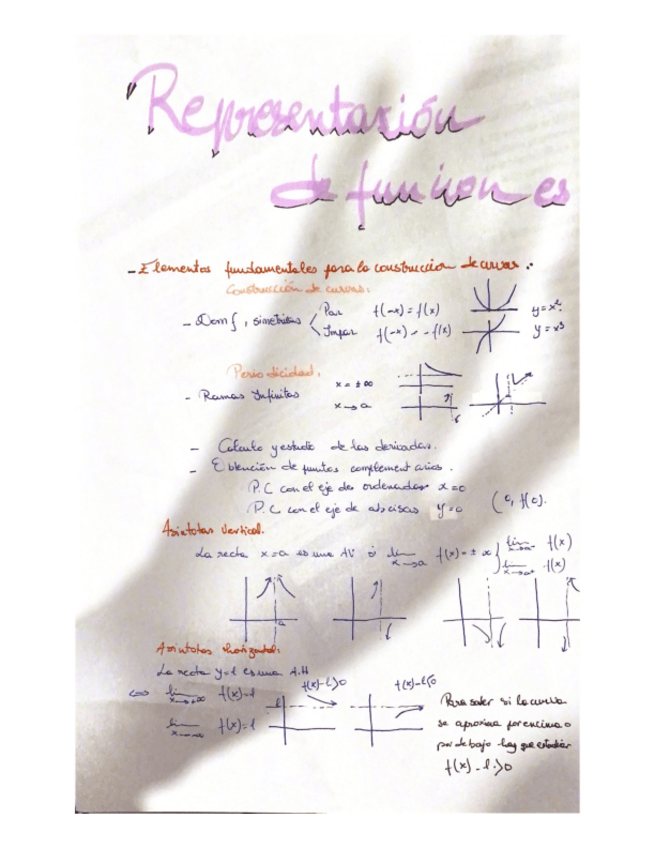 Representación
de funciones
- Elementos fundamentales para la construcción de curvas.
Construcción de curvas.
- Dom f, simetrías
Par f(-x) = f(x) y = x²
Impar f(-x) = - f(x) y = x³
Periodicidad.
- Ramas Infinitas
x = ± ∞
x → a
- Calculo y estudio de las derivadas.
- Obtención de puntos complementarios.
P.C con el eje de ordenadas x = 0 (0, f(0).
P.C con el eje de abscisas y = 0
Asíntotas Vertical.
La recta x = a es una AV si lim x → a f(x) = ± ∞
lim x → a⁻ f(x)
lim x → a⁺ f(x)
a
Asíntotas Horizontal:
La recta y = l es una A.H
f(x) - l > 0
f(x) - l < 0
⇔ lim x → +∞ f(x) = l
lim x → -∞ f(x) = l
l
Para saber si la curva
se aproxima por encima o
por debajo hay que estudiar
f(x) - l > 0